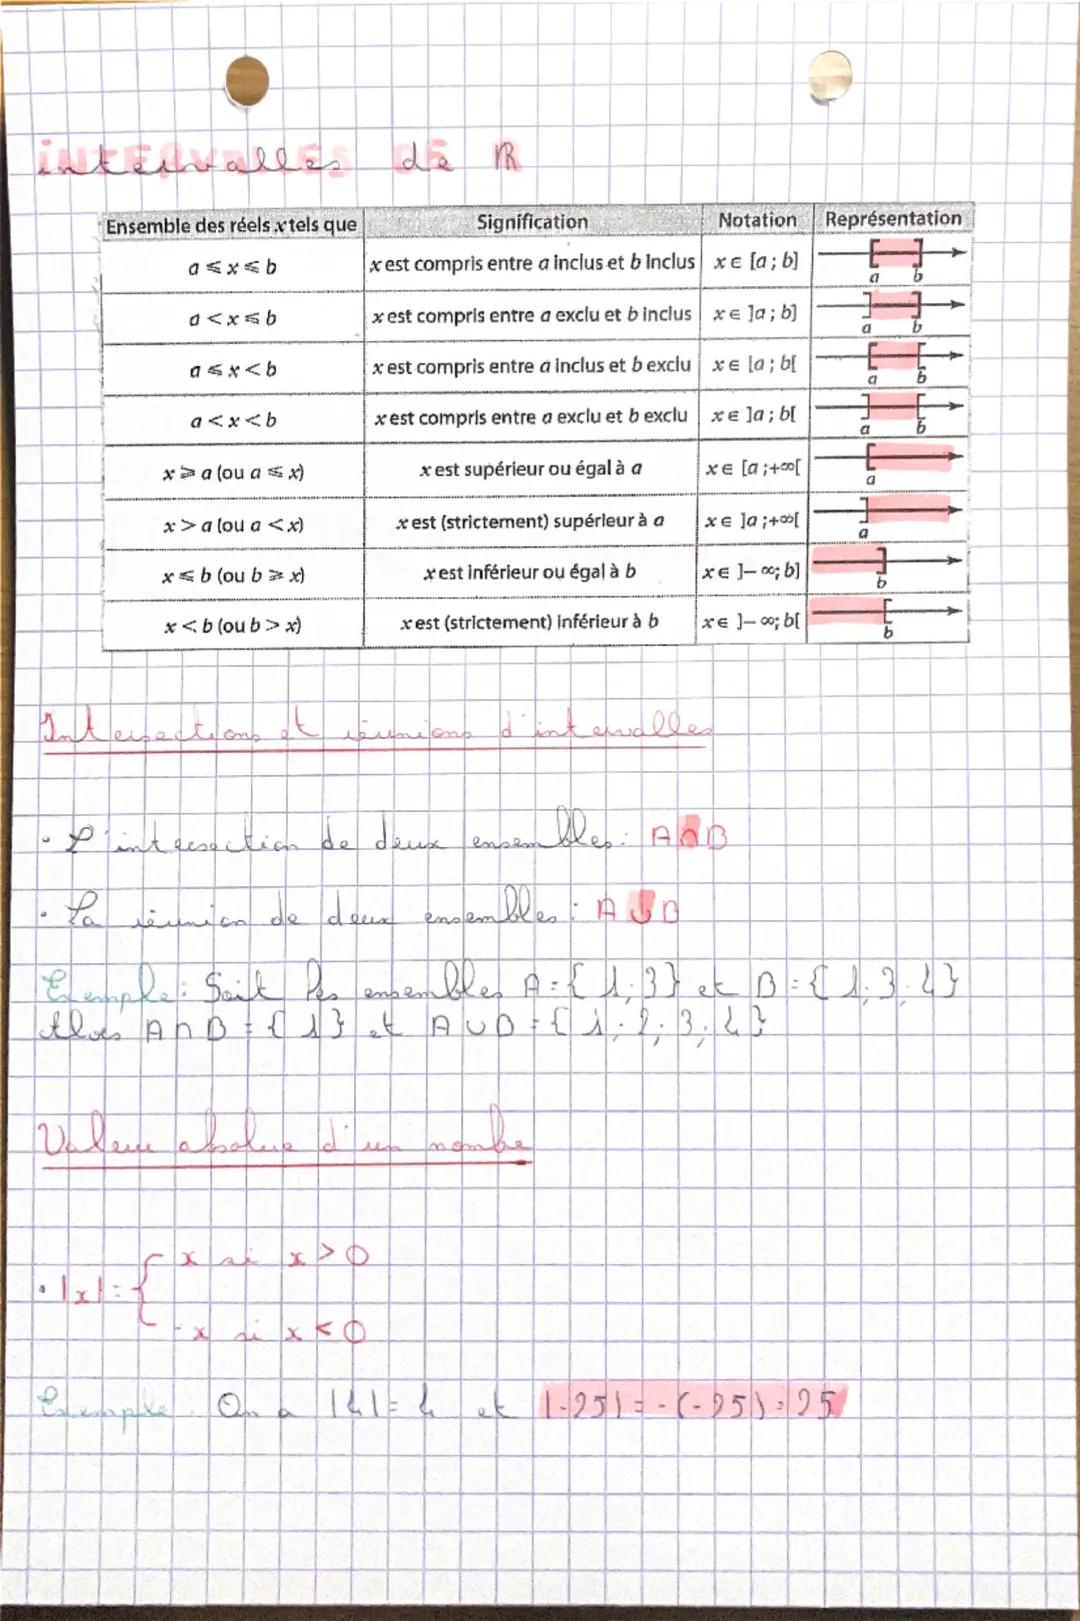 intervalles de ℝ
Ensemble des réels x tels que | Signification | Notation | Représentation
a ⩽ x ⩽ b | x est compris entre a inclus et b inclus | x ∈ [a ; b] | a b
a < x ⩽ b | x est compris entre a exclu et b inclus | x ∈ ]a ; b] | a b
a ⩽ x < b | x est compris entre a inclus et b exclu | x ∈ [a ; b[ | a b
a < x < b | x est compris entre a exclu et b exclu | x ∈ ]a ; b[ | a b
x ⩾ a (ou a ⩽ x) | x est supérieur ou égal à a | x ∈ [a ;+∞[ | a
x > a (ou a < x) | x est (strictement) supérieur à a | x ∈ ]a ;+∞[ | a
x ⩽ b (ou b ⩾ x) | x est inférieur ou égal à b | x ∈ ]– ∞; b] | b
x < b (ou b > x) | x est (strictement) inférieur à b | x ∈ ]– ∞; b[ | b
Intersections et réunions d'intervalles
• L'intersection de deux ensembles : A ∩ B
• La réunion de deux ensembles : A ∪ B
Exemple : Soit les ensembles A = { 1 ; 3 } et B = { 1 ; 3 ; 4 }
Alors A ∩ B = { 1 } et A ∪ B = { 1 ; 2 ; 3 ; 4 }
Valeur absolue d'un nombre
x si x > 0
• |x| = {
-x si x < 0
Exemple : On a |4| = 4 et |-25| = -(-25) = 25